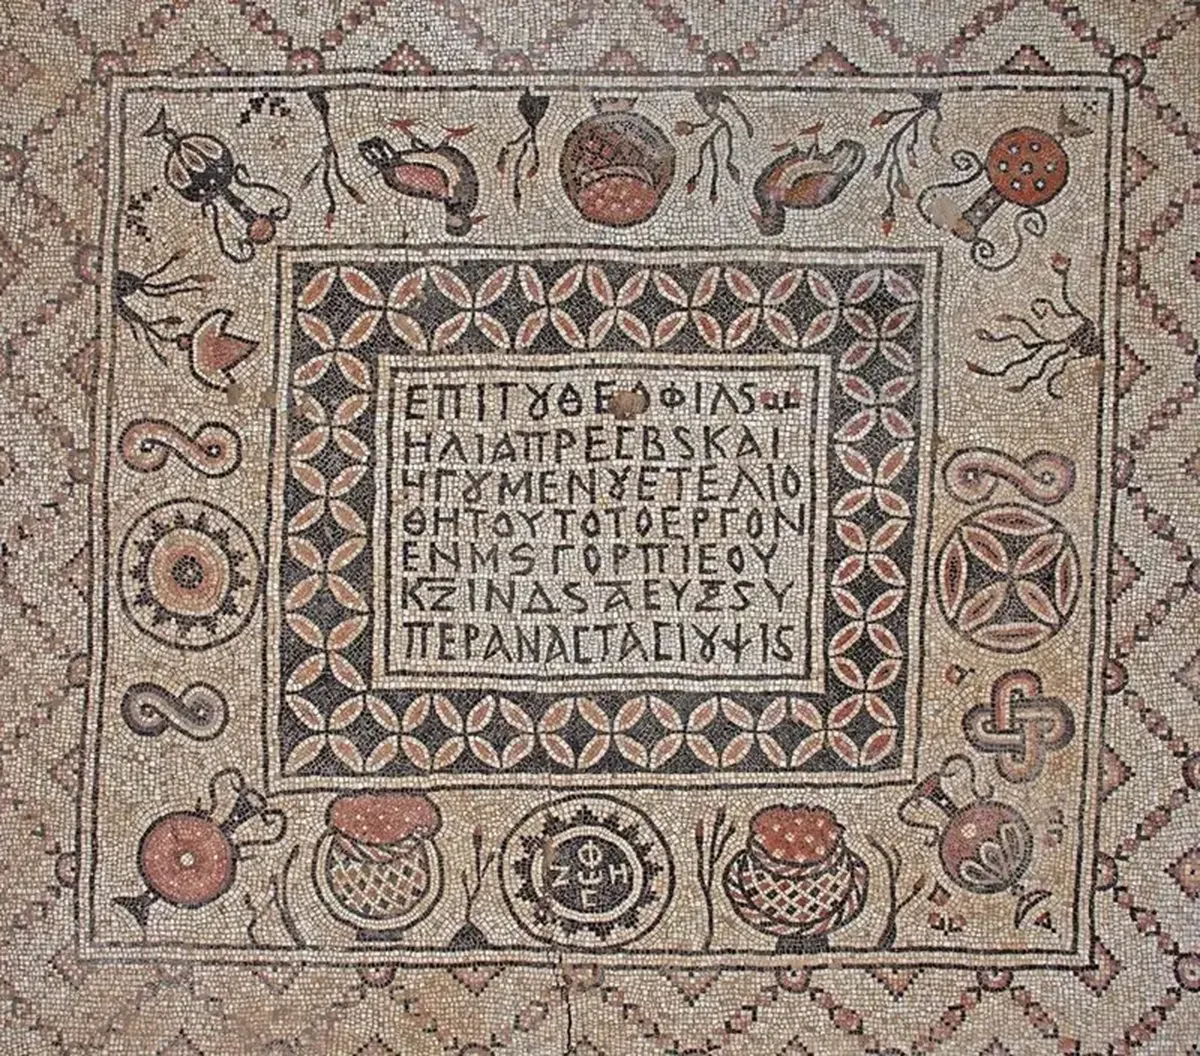 ΕΠΙΤȣΘΕΟΦΙΛS
ΗΛΙΑΠΡΕCΒSΚΑΙ
ΗΓȣΜΕΝȣΕΤΕΛΙΟ
ΘΗΤΟΥΤΟΤΟΕΡΓΟΝ
ΕΝΜSΓΟΡΠΙΕΟΥ
ΚΖΙΝΔSΑΕΥΞSΥ
ΠΕΡΑΝΑCΤΑCΙȣΨΙS